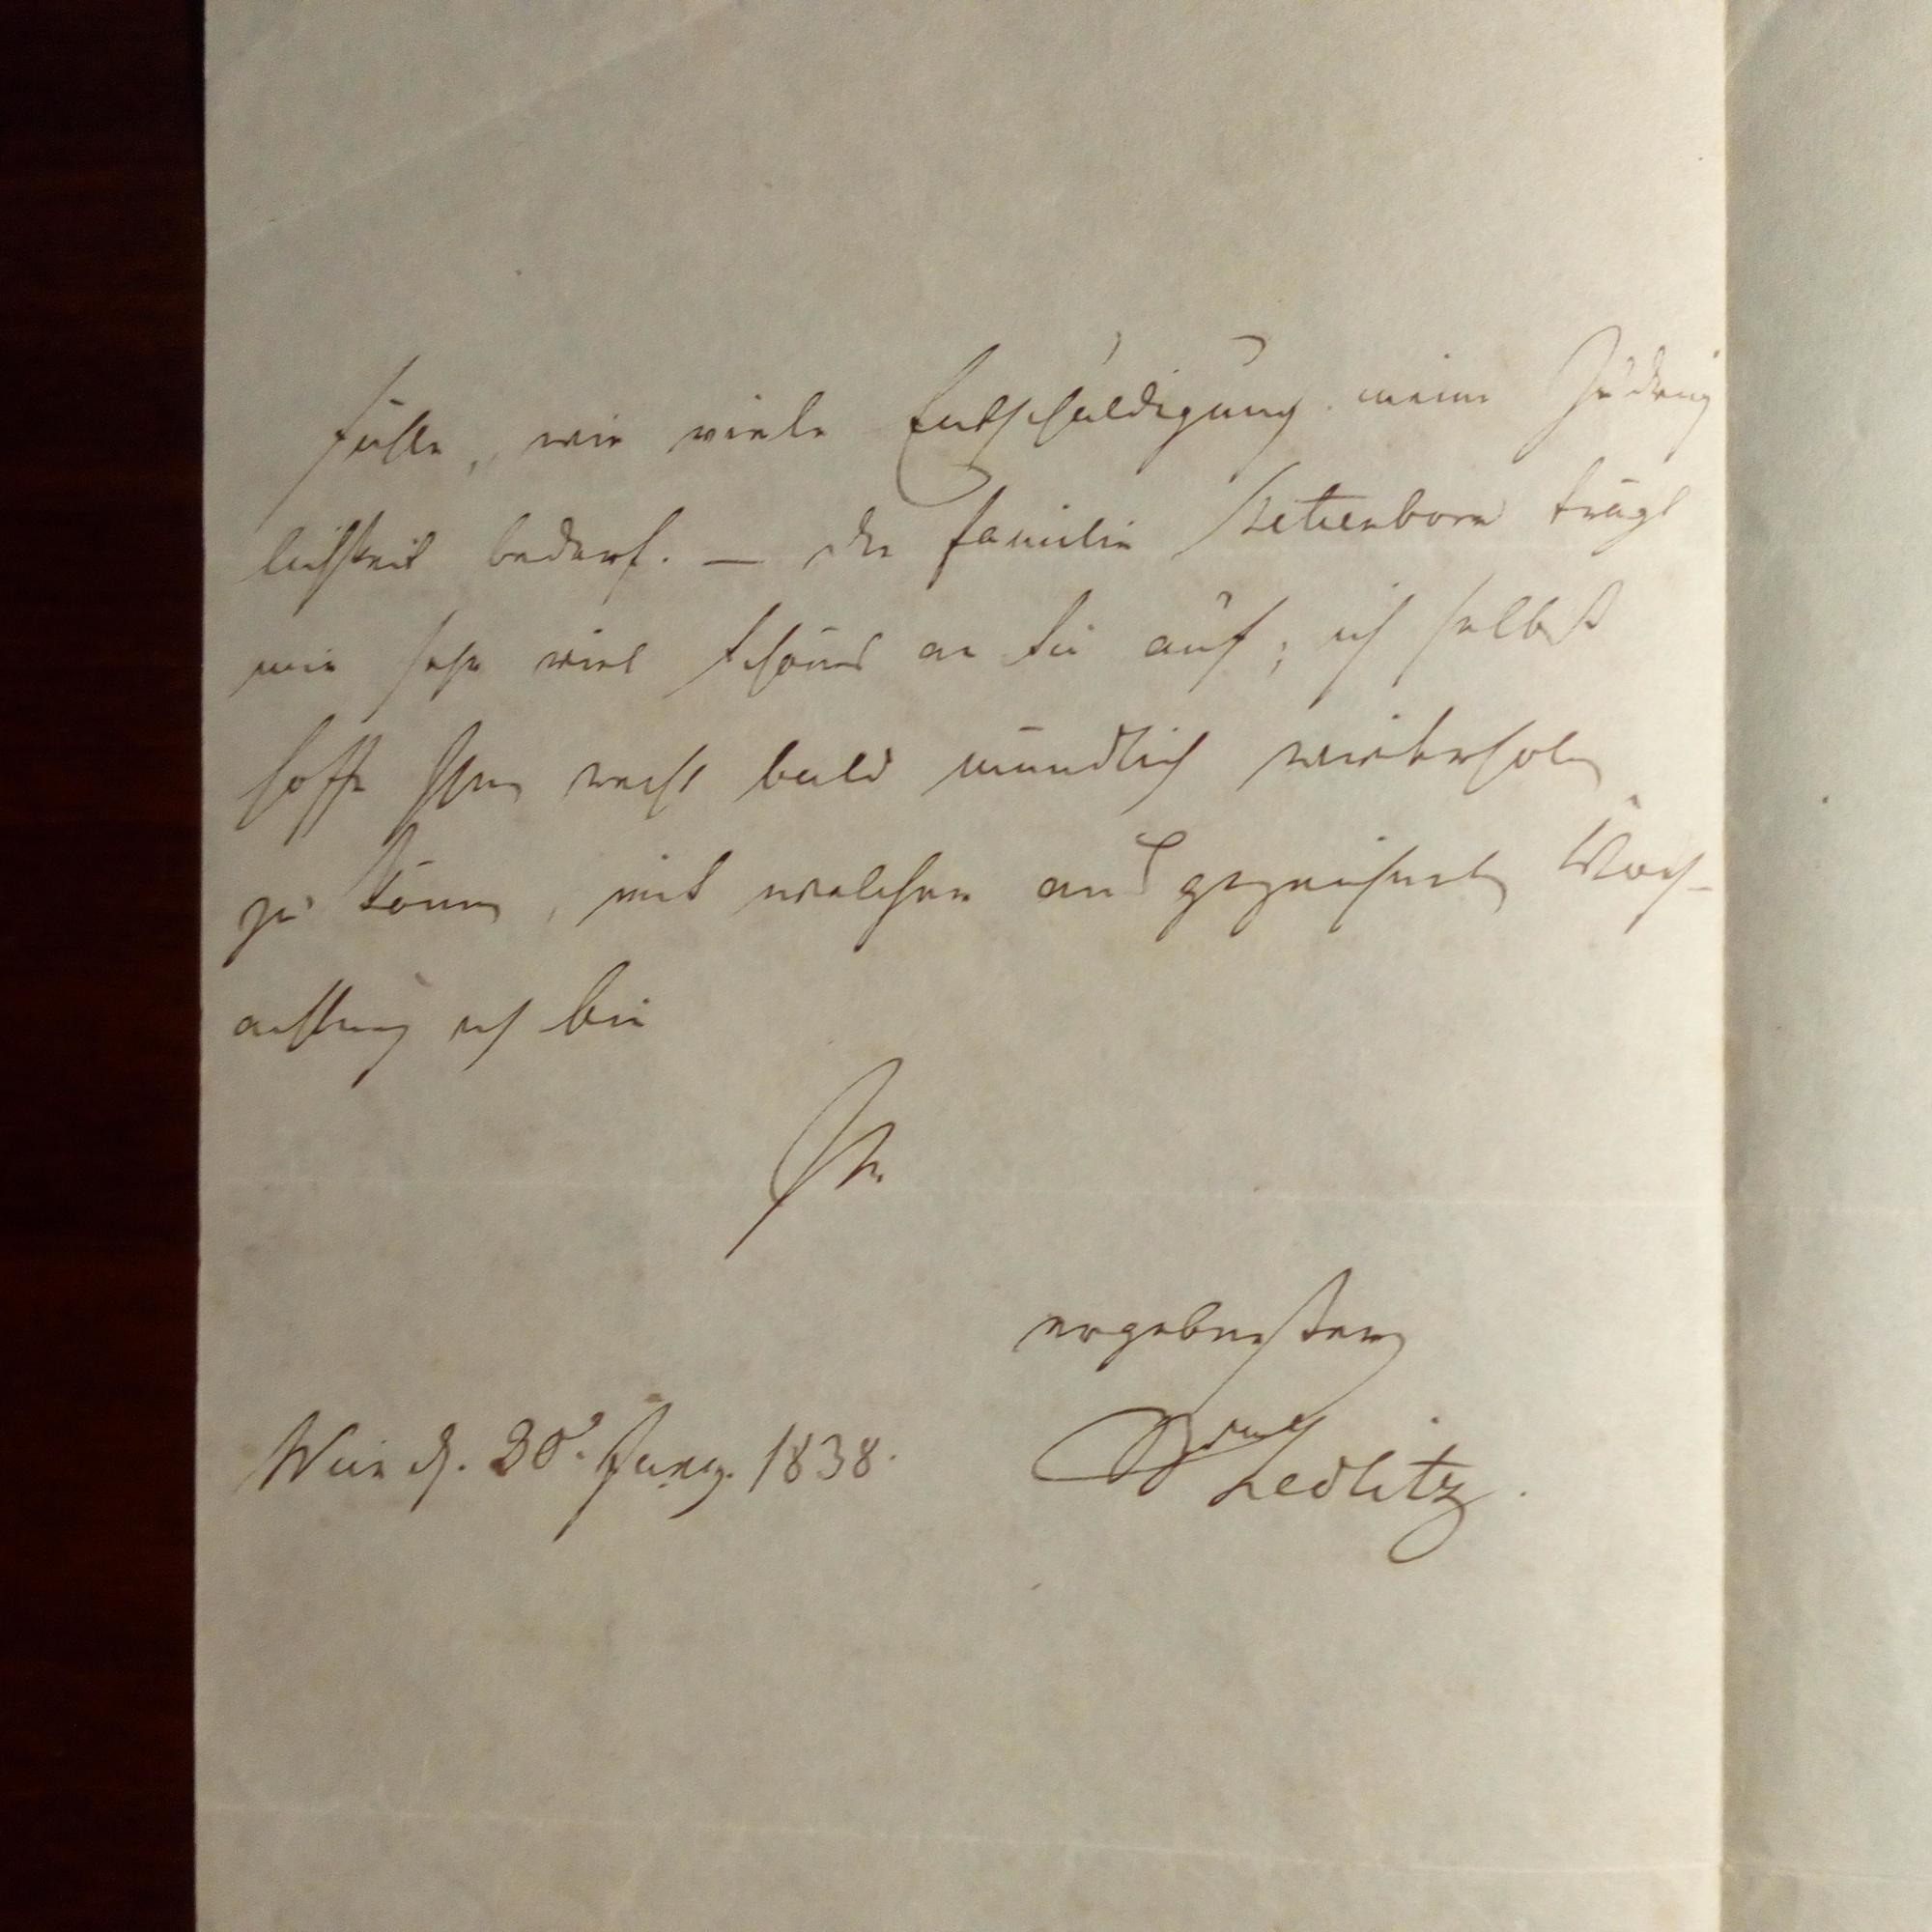 fühle, wie viele Entschuldigung meine Zudring
lichkeit bedarf. — Die Familie Rettenborn trägt
mir sehr viel Schönes an Sie auf; ich selbst
hoffe Ihnen recht bald mündlich wiederholen
zu können, mit welcher ausgezeichneten Hoch-
achtung ich bin
Ihr
ergebenster
Wien d. 30t. Jung. 1838.
Zedlitz.